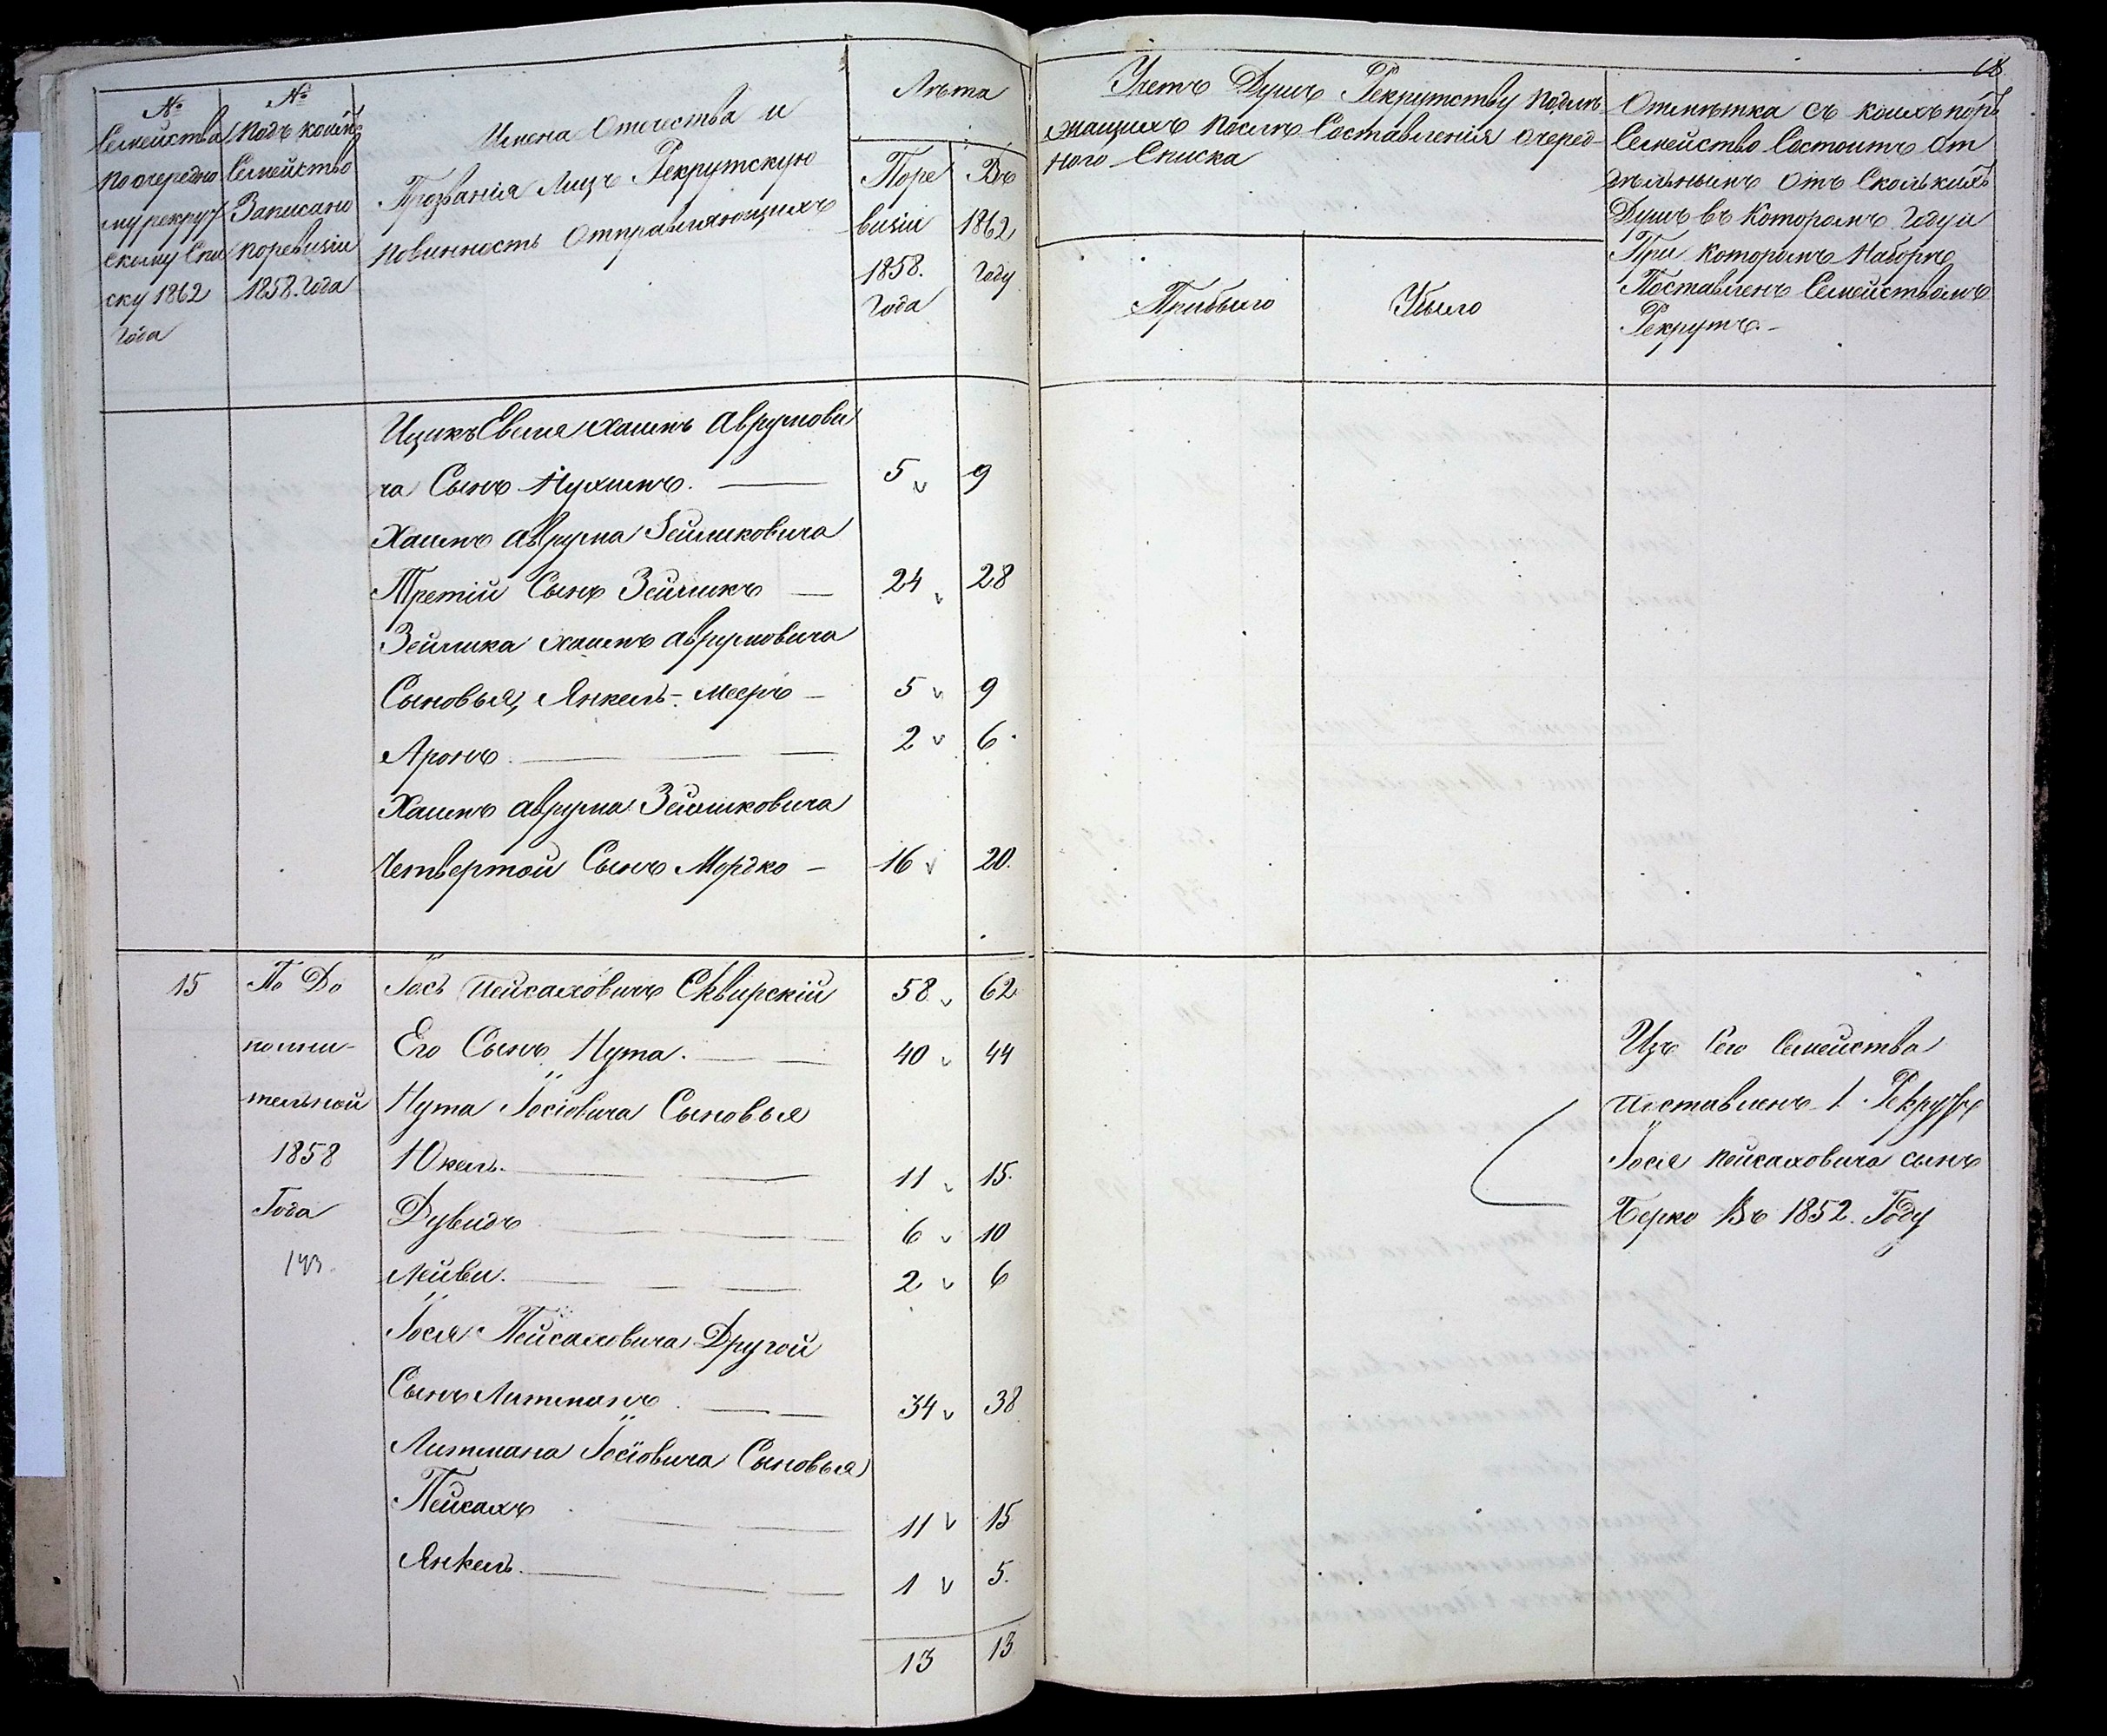 18
№
Семейства
по очередно
му рекрут
скому Спи
ску 1862
Года
№
Подъ коимъ
Семейство
Записано
по ревизіи
1858. Года
Имена Отечества и
Прозванія Лицъ Рекрутскую
повинность Отправляющихъ
Лѣта
По ре
визіи
1858.
Года
Въ
1862
Году
Учетъ Душъ Рекрутству подле
жащихъ послѣ Составленія очеред-
ного Списка
Прибыло
Убыло
Отмѣтка съ коихъ поръ
Семейство Состоитъ от
дѣльнымъ отъ Сколькихъ
Душъ въ Которомъ Году и
При Которомъ Наборѣ
Поставленъ Семействомъ
Рекрутъ.-
Ицикъ Евеля Хаимъ Аврумови
ча Сынъ Нухимъ. — 5 v 9
Хаимъ Аврума Зейликовича
Третій Сынъ Зейликъ — 24 v 28
Зейлика Хаимъ Аврумовича
Сыновья, Янкель-Мееръ — 5 v 9
Аронъ. — — 2 v 6.
Хаимъ Аврума Зейликовича
Четвертой Сынъ Мордко — 16 v 20.
15 По До Іось Пейсаховичъ Сквирскій 58 v 62
полни- Его Сынъ Нута. — — 40 v 44
тельной Нута Іосіовича Сыновья
1858 Юкель. — — 11 v 15.
Года Дувидъ — — 6 v 10
143. Лейви. — — 2 v 6
Іося Пейсаховича Другой
Сынъ Литманъ. — — 34 v 38
Литмана Іосіовича Сыновья
Пейсахъ — — 11 v 15
Янкель. — — — 1 v 5.
13 13
Изъ Сего Семейства
поставленъ 1. Рекрутъ
Іося Пейсаховича сынъ
Берко Въ 1852. Году